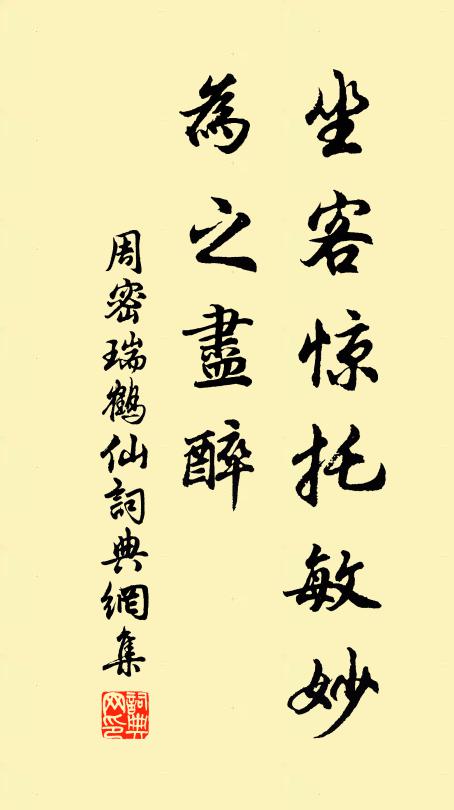 坐客惊托敏妙
為之盡醉
周密瑞鶴仙詞典網集
詞典
网印